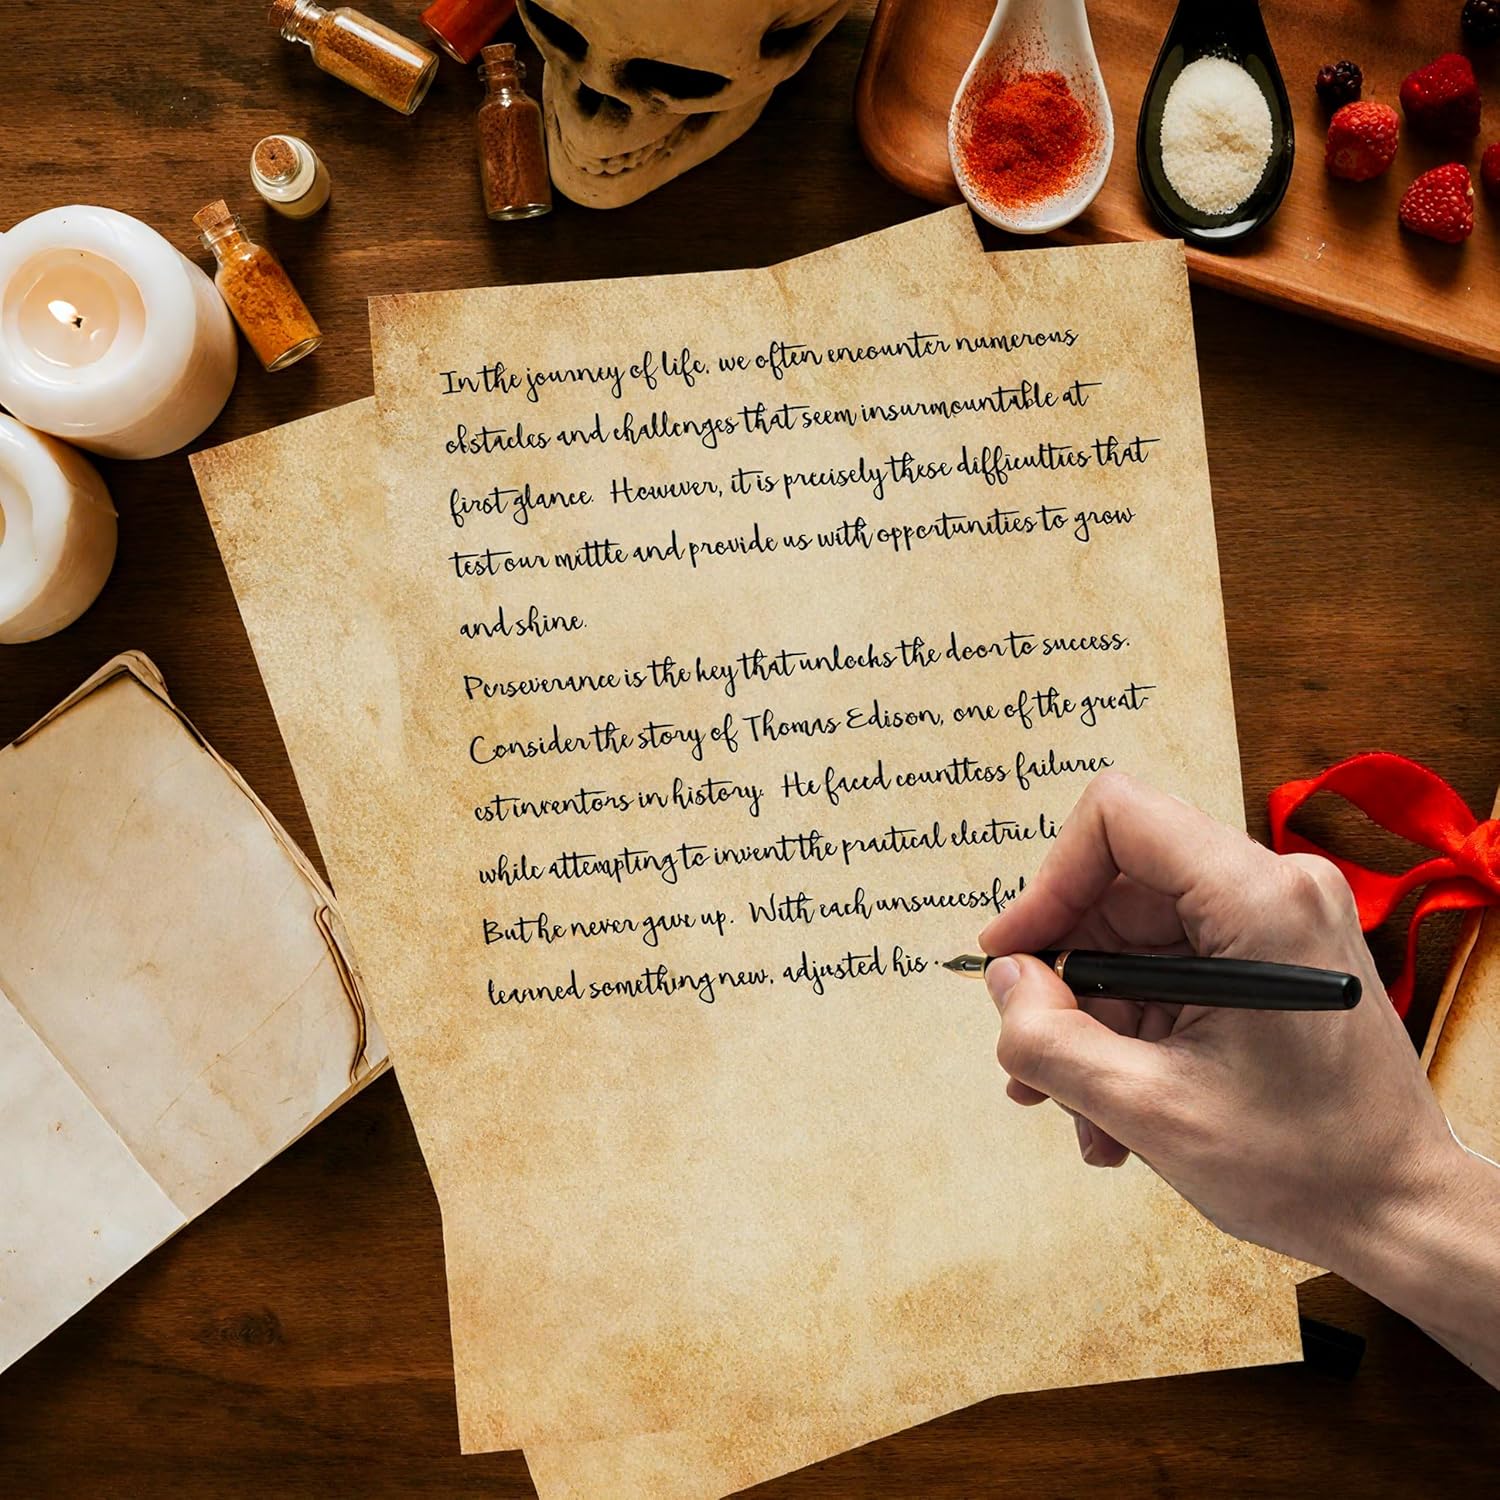 In the journey of life, we often encounter numerous
obstacles and challenges that seem insurmountable at
first glance. However, it is precisely these difficulties that
test our mettle and provide us with opportunities to grow
and shine.
Perseverance is the key that unlocks the door to success.
Consider the story of Thomas Edison, one of the great-
est inventors in history. He faced countless failures
while attempting to invent the practical electric li
But he never gave up. With each unsuccessful
learned something new, adjusted his